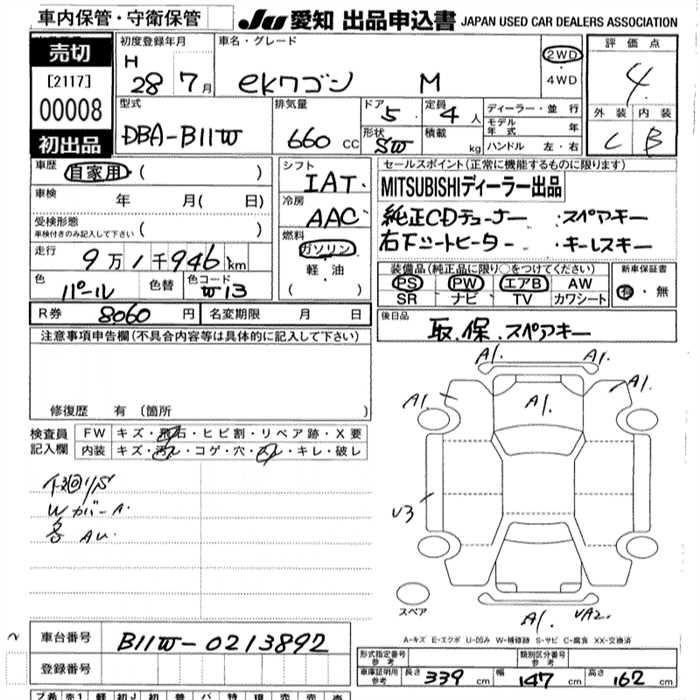 車内保管・守衛保管
JU 愛知 出品申込書 JAPAN USED CAR DEALERS ASSOCIATION
売切
[2117]
00008
初出品
初度登録年月
H 28年 7月
車名・グレード
ekワゴン M
2WD
4WD
評価点
4
外装 内装
C B
型式
DBA-B11W
排気量
660 cc
ドア
5
形状
SW
定員
4人
積載
kg
ディーラー・並行
モデル年式 年
ハンドル 左・右
車歴
自家用 ( )
車検
年 月( 日)
受検形態
車検付きのみ記入して下さい ( )
走行
9万1千946km
色
パール
色替
色コード
W13
シフト
IAT
冷房
AAC
燃料
ガソリン
軽・油
( )
セールスポイント(正常に機能するものに限ります)
MITSUBISHIディーラー出品
純正CDチューナー ・スペアキー
右下シートヒーター ・キーレスキー
装備品(純正品に限り○をつけてください)
PS PW エアB AW
SR ナビ TV カワシート
新車保証書
有・無
R券 8060円
名変期限 月 日
後日品
取.保.スペアキー
注意事項申告欄(不具合内容等は具体的に記入して下さい)
修復歴 有 (箇所 )
検査員記入欄
FW キズ・飛石・ヒビ割・リペア跡・X要
内装 キズ・汚レ・コゲ・穴・スレ・キレ・破レ
Wカバー A
各 AU
A1. A1.
A1. A1. A1.
U3
A1. UA2.
スペア
A-キズ E-エクボ U-凹み W-補修跡 S-サビ C-腐食 XX-交換済
車台番号
B11W-0213892
登録番号
形式指定番号 参考
類別区分番号 参考
車庫証明用 参考
長さ 339 cm 幅 147 cm 高さ 162 cm